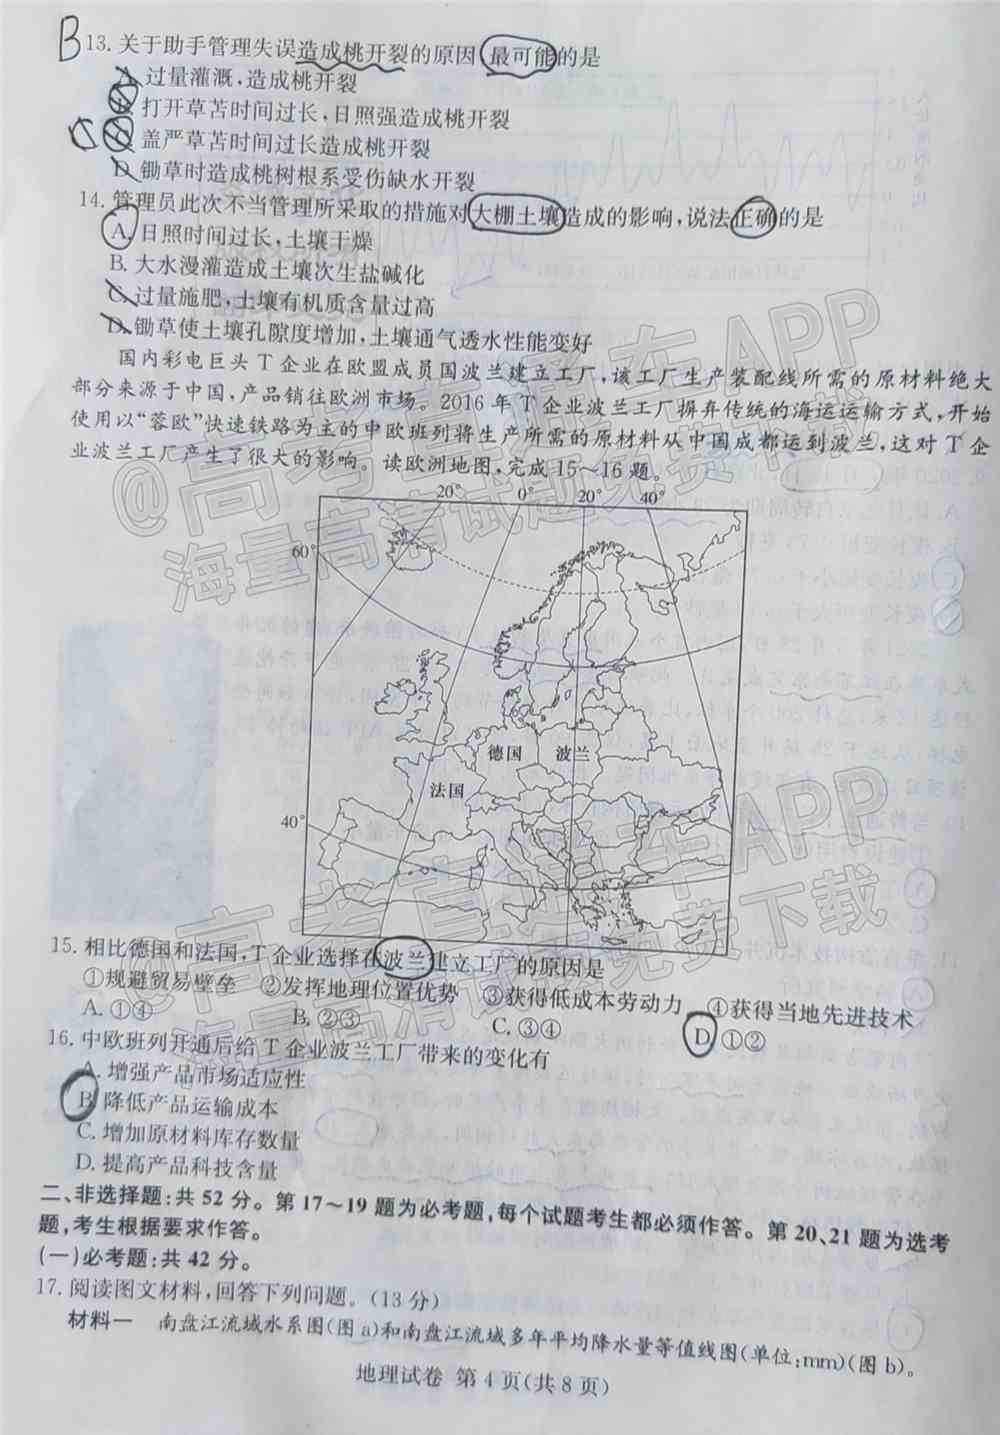 B 13. 关于助手管理失误造成桃开裂的原因,最可能的是
A. 过量灌溉,造成桃开裂
B. 打开草苫时间过长,日照强造成桃开裂
C. 盖严草苫时间过长造成桃开裂
D. 锄草时造成桃树根系受伤缺水开裂
14. 管理员此次不当管理所采取的措施对大棚土壤造成的影响,说法正确的是
A. 日照时间过长,土壤干燥
B. 大水漫灌造成土壤次生盐碱化
C. 过量施肥,土壤有机质含量过高
D. 锄草使土壤孔隙度增加,土壤通气透水性能变好
国内彩电巨头T企业在欧盟成员国波兰建立工厂,该工厂生产装配线所需的原材料绝大
部分来源于中国,产品销往欧洲市场。2016年T企业波兰工厂摒弃传统的海运运输方式,开始
使用以“蓉欧”快速铁路为主的中欧班列将生产所需的原材料从中国成都运到波兰,这对T企
业波兰工厂产生了很大的影响。读欧洲地图,完成15~16题。
20° 0° 20° 40°
60°
德国 波兰
法国
40°
15. 相比德国和法国,T企业选择在波兰建立工厂的原因是
①规避贸易壁垒 ②发挥地理位置优势 ③获得低成本劳动力 ④获得当地先进技术
A. ①④ B. ②③ C. ③④ D. ①②
16. 中欧班列开通后给T企业波兰工厂带来的变化有
A. 增强产品市场适应性
B. 降低产品运输成本
C. 增加原材料库存数量
D. 提高产品科技含量
二、非选择题:共52分。第17~19题为必考题,每个试题考生都必须作答。第20、21题为选考
题,考生根据要求作答。
(一)必考题:共42分。
17. 阅读图文材料,回答下列问题。(13分)
材料一 南盘江流域水系图(图a)和南盘江流域多年平均降水量等值线图(单位:mm)(图b)。
地理试卷 第4页(共8页)